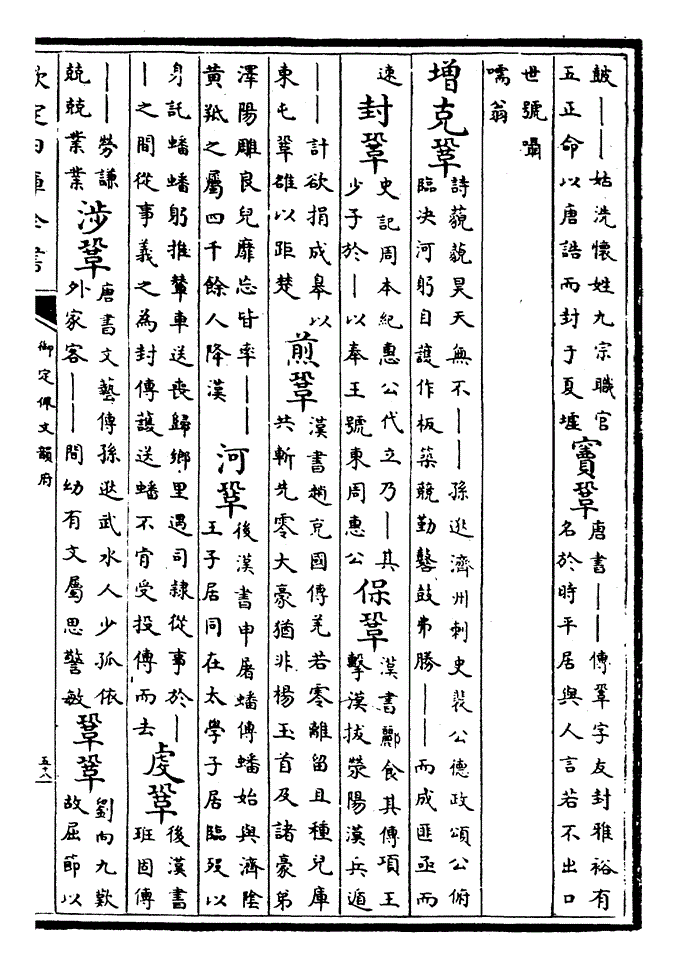 皷——姑洗懷姓九宗職官
五正命以唐誥而封于夏墟
竇鞏
唐書——傳鞏字友封雅裕有
名於時平居與人言若不出口
世號囁
嚅翁
增克鞏
詩藐藐昊天無不——孫逖濟州刺史裴公德政頌公俯
臨決河躬自護作板築競勤鼛鼓弗勝——而成匪亟而
速
封鞏
史記周本紀惠公代立乃—其
少子於—以奉王號東周惠公
保鞏
漢書酈食其傳項王
擊漢拔滎陽漢兵遁
——計欲捐成皋以
東屯鞏雒以距楚
煎鞏
漢書趙充國傳羌若零離留且種兒庫
共斬先零大豪猶非楊玉首及諸豪弟
澤陽雕良兒靡忘皆率——
黃羝之屬四千餘人降漢
河鞏
後漢書申屠蟠傳蟠始與濟陰
王子居同在太學子居臨歿以
身託蟠蟠躬推輦車送喪歸鄉里遇司隸從事於—
—之間從事義之為封傳護送蟠不肯受投傳而去
虔鞏
後漢書
班固傳
——勞謙
兢兢業業
涉鞏
唐書文藝傳孫逖武水人少孤依
外家客——間幼有文屬思警敏
鞏鞏
劉向九歎
故屈節以
欽定四庫全書
御定佩文韻府
五十八